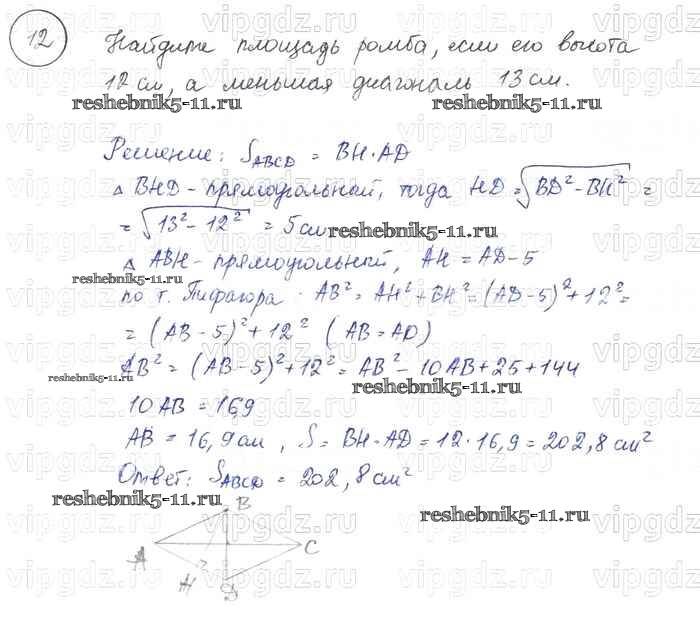 12
Найдите площадь ромба, если его высота
12 см, а меньшая диагональ 13 см.
reshebnik5-11.ru reshebnik5-11.ru
Решение: S_ABCD = BH·AD
△ BHD - прямоугольный, тогда HD = √(BD² - BH²) =
= √(13² - 12²) = 5 см
reshebnik5-11.ru
△ ABH - прямоугольный, AH = AD - 5
reshebnik5-11.ru
по т. Пифагора AB² = AH² + BH² = (AD - 5)² + 12² =
= (AB - 5)² + 12² (AB = AD)
AB² = (AB - 5)² + 12² = AB² - 10AB + 25 + 144
reshebnik5-11.ru reshebnik5-11.ru
10AB = 169
AB = 16,9 см, S = BH·AD = 12·16,9 = 202,8 см²
Ответ: S_ABCD = 202,8 см²
reshebnik5-11.ru reshebnik5-11.ru
B
A
C
H
D
vipgdz.ru